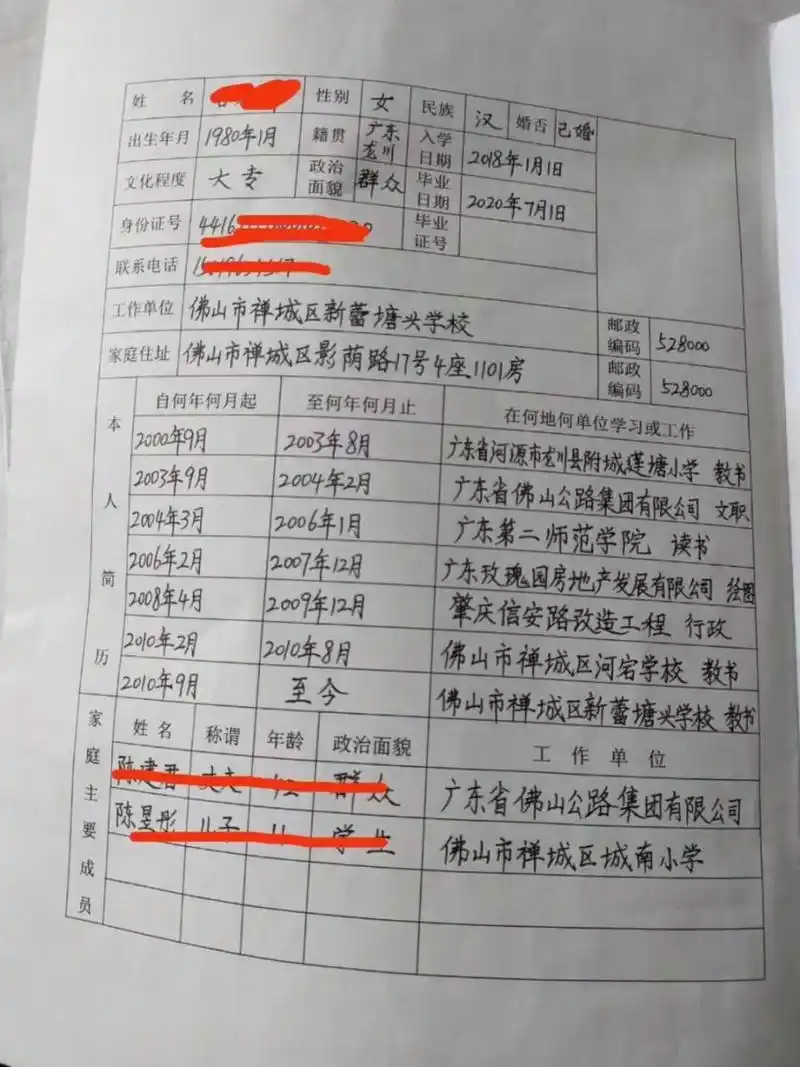 姓 名 性别 女 民族 汉 婚否 已婚
出生年月 1980年1月 籍贯 广东龙川 入学日期 2018年1月1日
文化程度 大专 政治面貌 群众 毕业日期 2020年7月1日
身份证号 毕业证号
联系电话
工作单位 佛山市禅城区新蕾塘头学校 邮政编码 528000
家庭住址 佛山市禅城区影荫路17号4座1101房 邮政编码 528000
本人简历
自何年何月起 至何年何月止 在何地何单位学习或工作
2000年9月 2003年8月 广东省河源市龙川县附城莲塘小学 教书
2003年9月 2004年2月 广东省佛山公路集团有限公司 文职
2004年3月 2006年1月 广东第二师范学院 读书
2006年2月 2007年12月 广东玫瑰园房地产发展有限公司 绘图
2008年4月 2009年12月 肇庆信安路改造工程 行政
2010年2月 2010年8月 佛山市禅城区河宕学校 教书
2010年9月 至今 佛山市禅城区新蕾塘头学校 教书
家庭主要成员
姓名 称谓 年龄 政治面貌 工作单位
群众 广东省佛山公路集团有限公司
儿子 佛山市禅城区城南小学